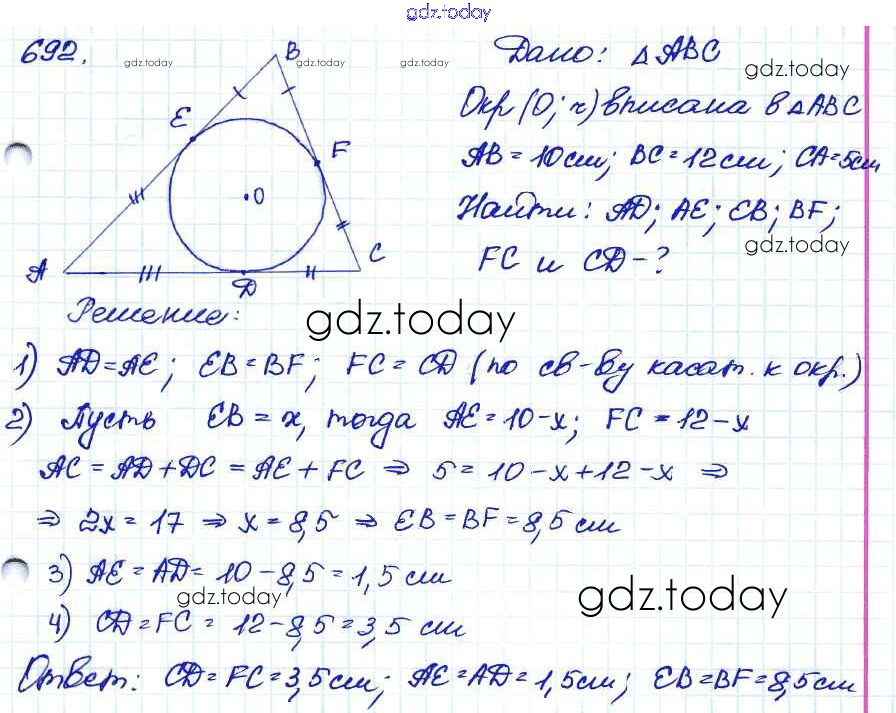 gdz.today
692.
B
Дано: △ABC
gdz.today
gdz.today
gdz.today
gdz.today
Окр (O; r) вписана в △ABC
E
F
AB = 10 см; BC = 12 см; CA = 5 см
O
Найти: AD; AE; EB; BF;
gdz.today
FC и CD - ?
A
C
D
Решение:
gdz.today
1) AD = AE; EB = BF; FC = CD (по св-ву касат. к окр.)
2) Пусть EB = x, тогда AE = 10 - x; FC = 12 - x
AC = AD + DC = AE + FC ⇒ 5 = 10 - x + 12 - x ⇒
⇒ 2x = 17 ⇒ x = 8,5 ⇒ EB = BF = 8,5 см
3) AE = AD = 10 - 8,5 = 1,5 см
gdz.today
gdz.today
4) CD = FC = 12 - 8,5 = 3,5 см
Ответ: CD = FC = 3,5 см; AE = AD = 1,5 см; EB = BF = 8,5 см